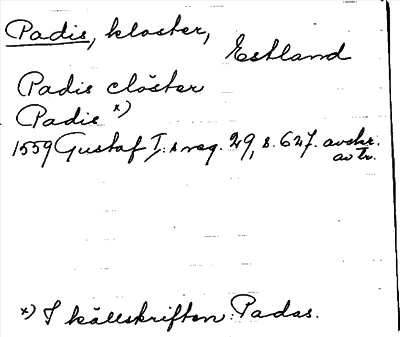 Padis, kloster,
Estland
Padis clöster
Padis x)
1559 Gustaf I:s reg. 29, s. 627. avskr.
av tr.
x) I källskriften: Padas.